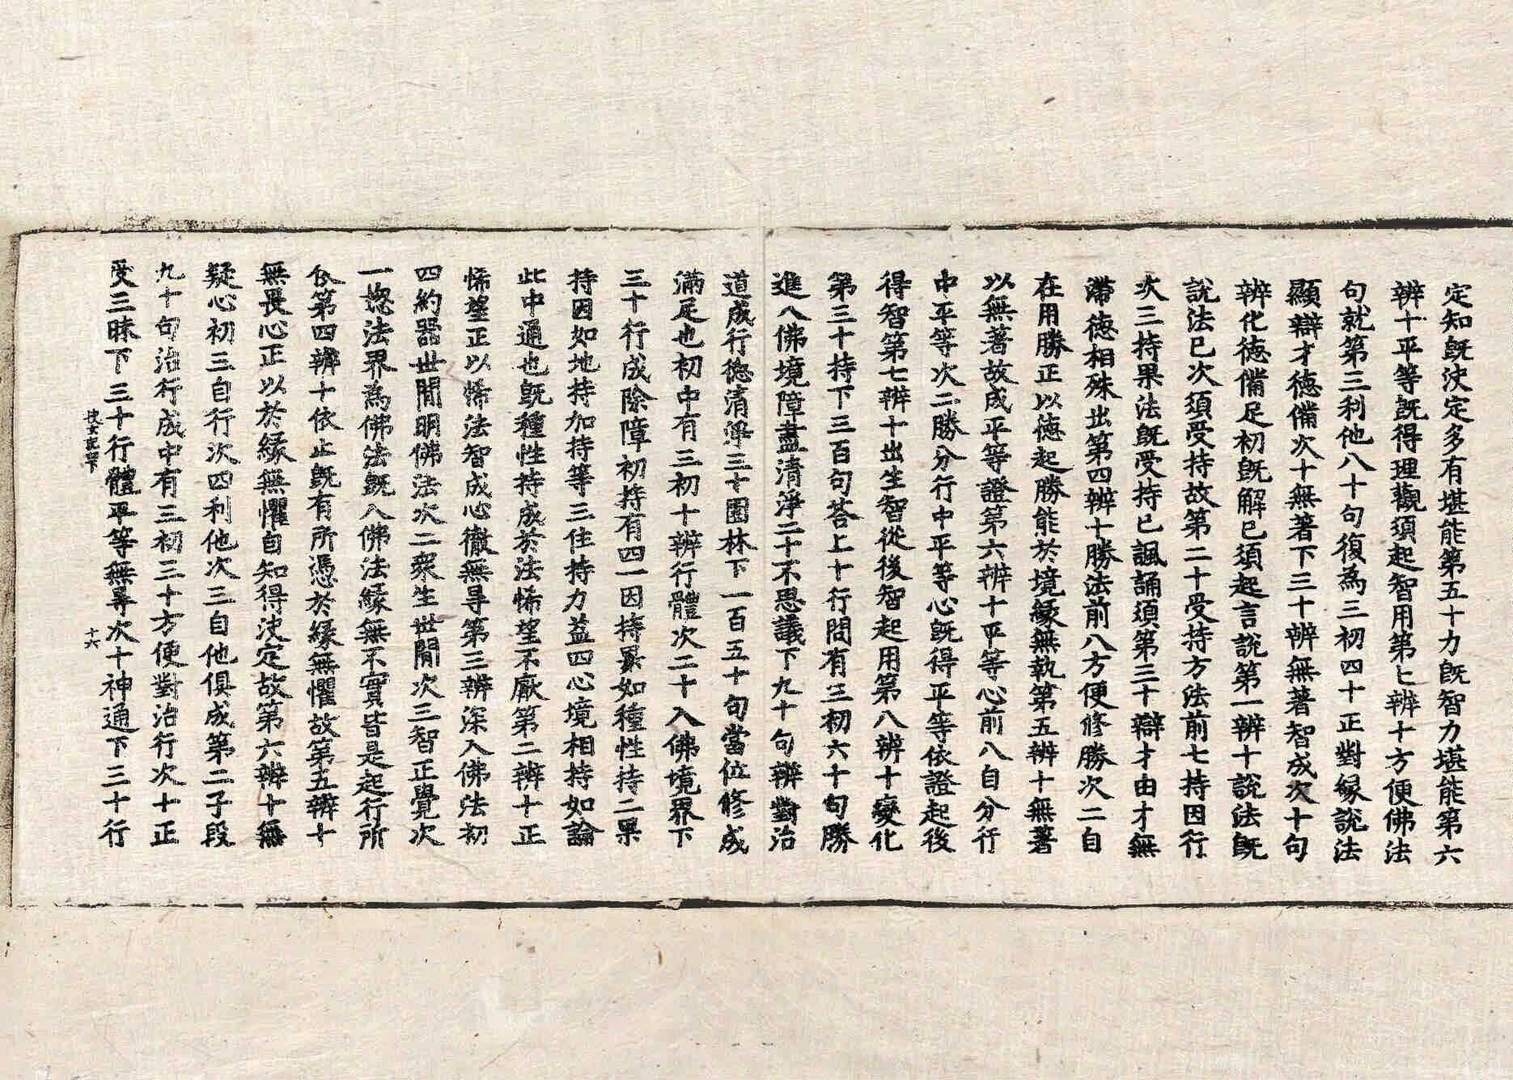 定知既決定多有堪能第五十力既智力堪能第六
辨十平等既得理觀須起智用第七辨十方便佛法
句就第三利他八十句復為三初四十正對縁說法
顯辯才德備次十無著下三十辨無著智成次十句
辨化德備足初既解已須起言說第一辨十說法既
說法已次須受持故第二十受持方法前七持因行
次三持果法既受持已諷誦須第三十辯才由才無
滯德相殊出第四辨十勝法前八方便修勝次二自
在用勝正以德起勝能於境縁無執第五辨十無著
以無著故成平等證第六辨十平等心前八自分行
中平等次二勝分行中平等心既得平等依證起後
得智第七辨十出生智從後智起用第八辨十變化
第三十持下三百句荅上十行問有三初六十句勝
進入佛境障盡清淨二十不思議下九十句辨對治
道成行德清淨三十園林下一百五十句當位修成
滿足也初中有三初十辨行體次二十入佛境界下
三十行成除障初持有四一因持最如種性持二果
持因如地持加持等三住持力益四心境相持如論
此中通也既種性持成於法悕望不厭第二辨十正
悕望正以悕法智成心徹無㝵第三辨深入佛法初
四約器世間明佛法次二衆生世間次三智正覺次
一揔法界為佛法既入佛法縁無不實皆是起行所
依第四辨十依止既有所憑於縁無懼故第五辨十
無畏心正以於縁無懼自知得決定故第六辨十無
疑心初三自行次四利他次三自他俱成第二子段
九十句治行成中有三初三十方便對治行次十正
受三昧下三十行體平等無㝵次十神通下三十行
十六